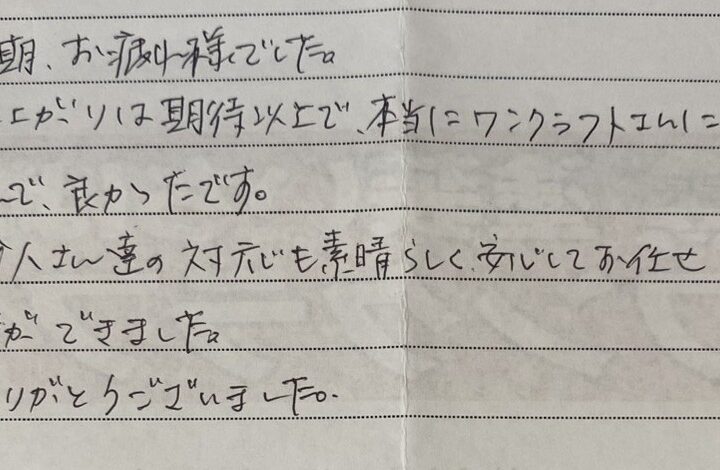 期、お疲れ様でした。
上がりは期待以上で、本当にワンクラフトさんに
んで、良かったです。
人さん達の対応も素晴らしく、安心してお任せ
ができました。
りがとうございました。